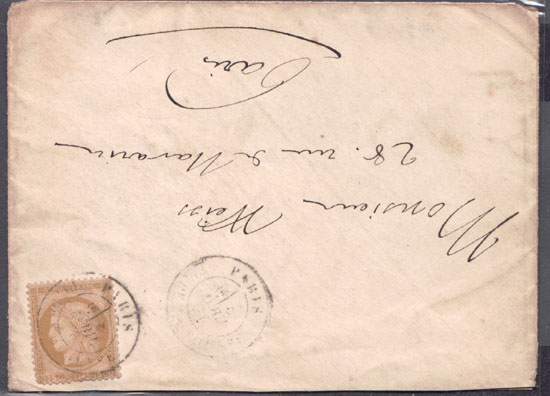 Monsieur
Weiss
28. rue de Navarin
Paris
PARIS
PARIS